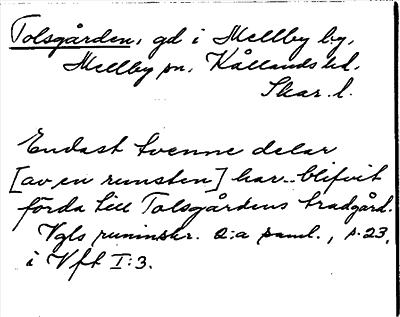 Tolsgården, gd i Mellby by,
Mellby sn, Kållands hd.
Skar. l.
Endast tvenne delar
[av en runsten] har blifvit
förda till Tolsgårdens trädgård.
Vgls runinskr. 2:a saml., s. 23,
i Vft I:3.